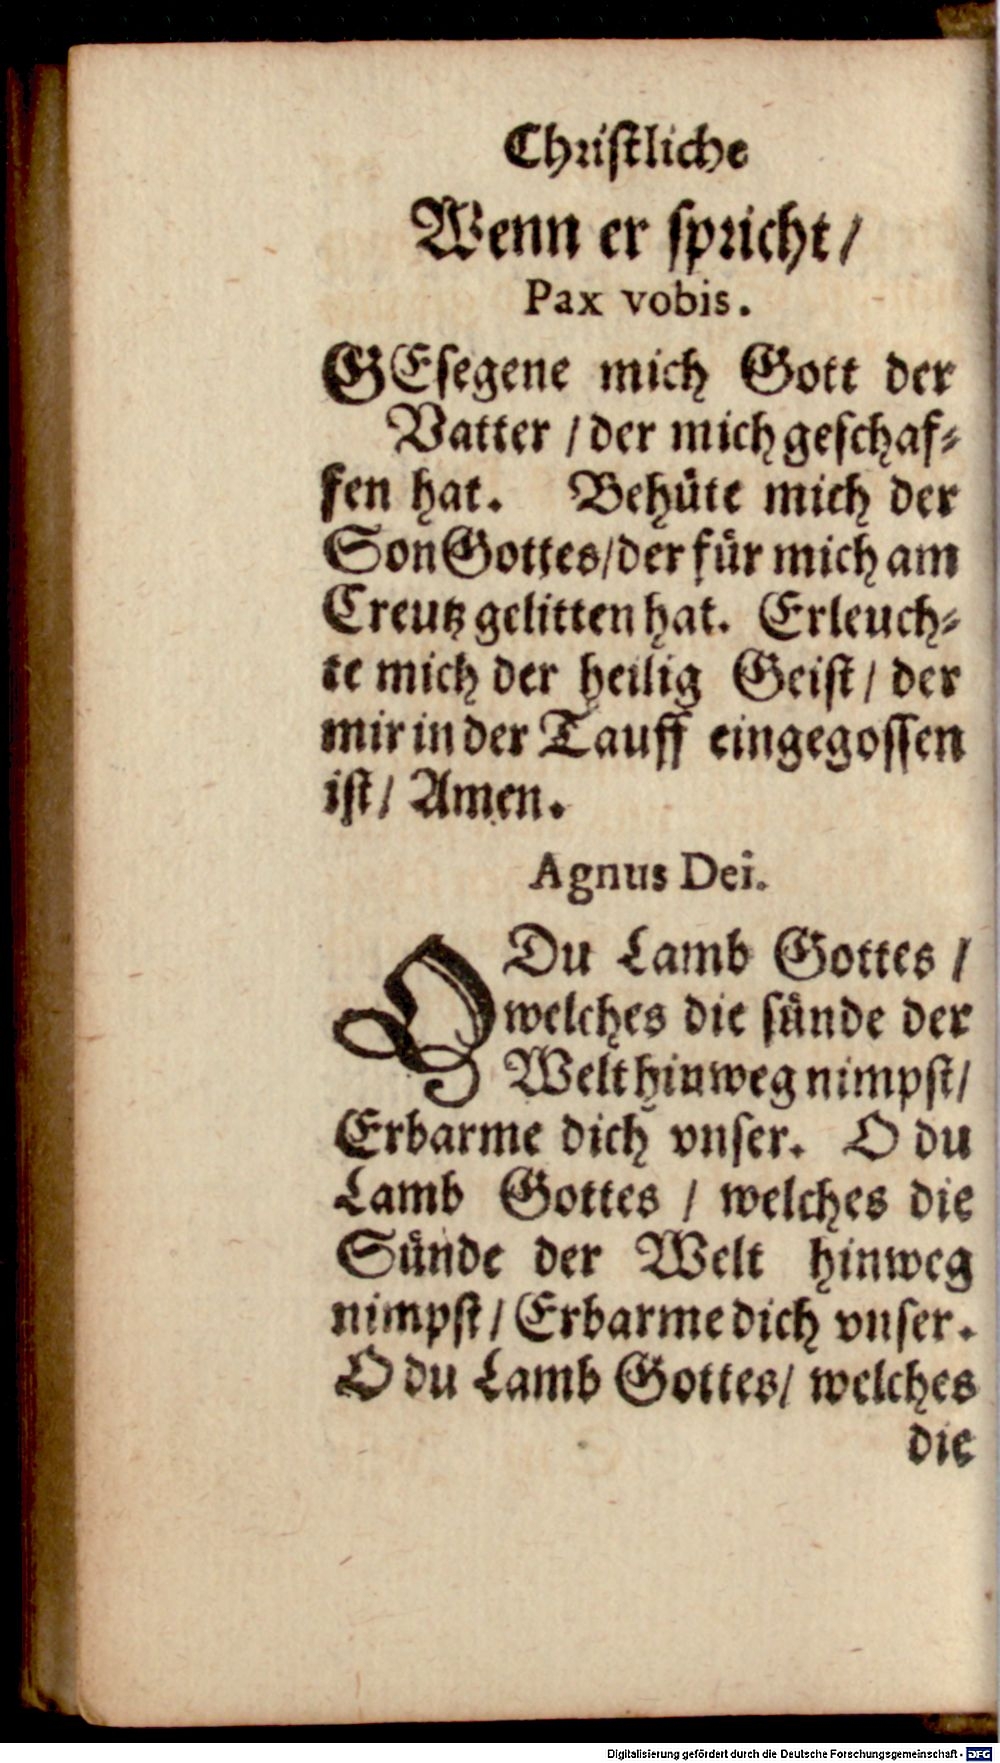 Christliche
Wenn er spricht/
Pax vobis.
GEsegene mich Gott der
Vatter / der mich geschaf-
fen hat. Behüte mich der
Son Gottes/der für mich am
Creutz gelitten hat. Erleuch-
te mich der heilig Geist / der
mir in der Tauff eingegossen
ist/ Amen.
Agnus Dei.
O Du Lamb Gottes /
welches die sünde der
Welt hinweg nimpst/
Erbarme dich vnser. O du
Lamb Gottes / welches die
Sünde der Welt hinweg
nimpst/ Erbarme dich vnser.
O du Lamb Gottes/ welches
die
Digitalisierung gefördert durch die Deutsche Forschungsgemeinschaft - DFG